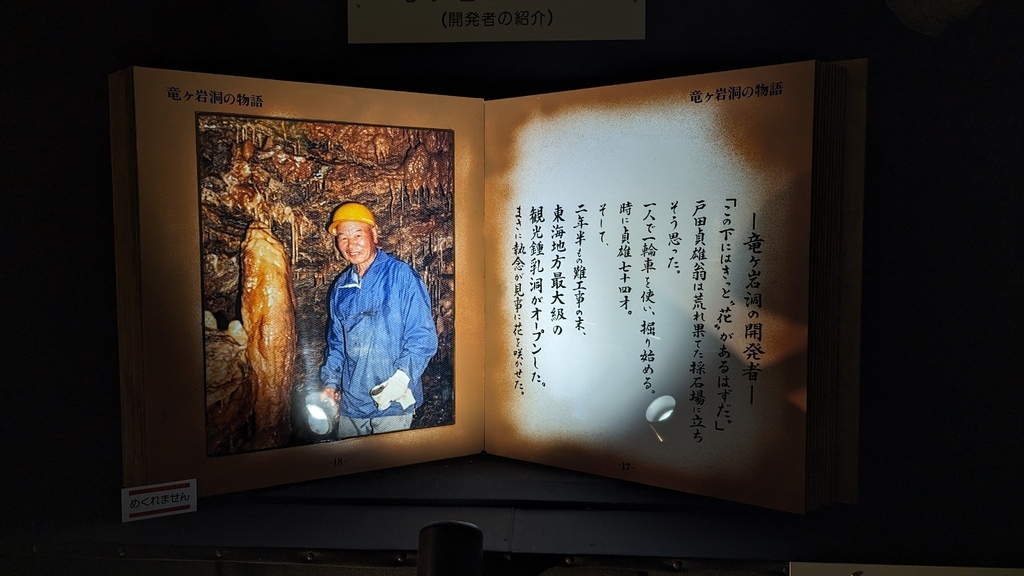 (開発者の紹介)
竜ヶ岩洞の物語
―竜ヶ岩洞の開発者―
「この下にはきっと"花"があるはずだ。」
戸田貞雄翁は荒れ果てた採石場に立ち
そう思った。
一人で一輪車を使い、掘り始める。
時に貞雄七十四才。
そして、
二年半もの難工事の末、
東海地方最大級の
観光鍾乳洞がオープンした。
まさに執念が見事に花を咲かせた。
-17-
竜ヶ岩洞の物語
-18-
めくれません